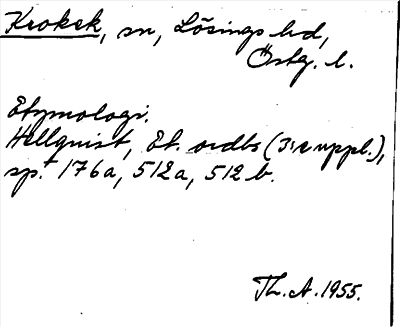 Krokek, sn, Lösings hd,
Östg. l.
Etymologi.
Hellquist, Et. ordb (3:e uppl.),
sp. 176a, 512a, 512b.
Th. A. 1955.